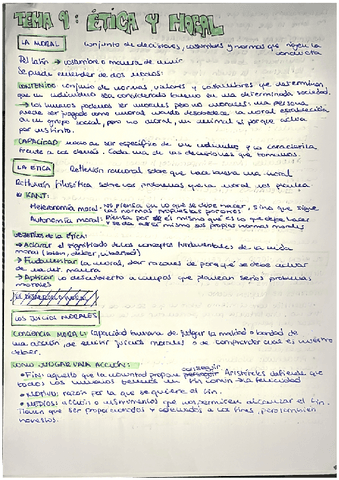 TEMA 9: ÉTICA Y MORAL
LA MORAL conjunto de decisiones, costumbres y normas que rigen la
conducta
Del latín → costumbre o manera de vivir
Se puede entender de dos modos:
CONTENIDO: conjunto de normas, valores y costumbres que determinan
que un individuo sea considerado bueno en una determinada sociedad.
→ Los humanos podemos ser inmorales pero no amorales: una persona
puede ser juzgada como inmoral cuando desobedece la moral establecida
de un grupo social, pero no amoral, un animal sí porque actúa
por instinto.
CAPACIDAD: modo de ser específico de un individuo y lo caracteriza
frente a los demás. Cada una de las decisiones que tomamos.
LA ÉTICA Reflexión racional sobre que sea buena una moral
Reflexión filosófica sobre los problemas que la moral nos plantea.
→ KANT:
Heteronomía moral: No piensa en lo que se debe hacer, sino que sigue
las normas propuestas por otros
Autonomía moral: Piensa por sí misma qué es lo que debe hacer
y se da a sí misma sus propias normas morales
Objetivos de la ética:
→ Aclarar el significado de los conceptos fundamentales de la vida
moral (bien, deber, libertad)
→ Fundamentar la moral, dar razones de por qué se debe actuar
de una manera
→ Aplicar lo descubierto a campos que plantean serios problemas
morales
LOS JUICIOS MORALES
CONCIENCIA MORAL: Capacidad humana de juzgar la maldad o bondad de
una acción, de emitir juicios morales o de comprender cuál es nuestro
deber.
CÓMO JUZGAR UNA ACCIÓN:
• FIN: aquello que la voluntad propone conseguir. Aristóteles defiende que
todos los humanos tenemos un fin común → la felicidad
• MOTIVO: razón por la que se quiere el fin.
• MEDIOS: acción o instrumentos que nos permiten alcanzar el fin.
Tienen que ser proporcionados y adecuados a los fines, pero también